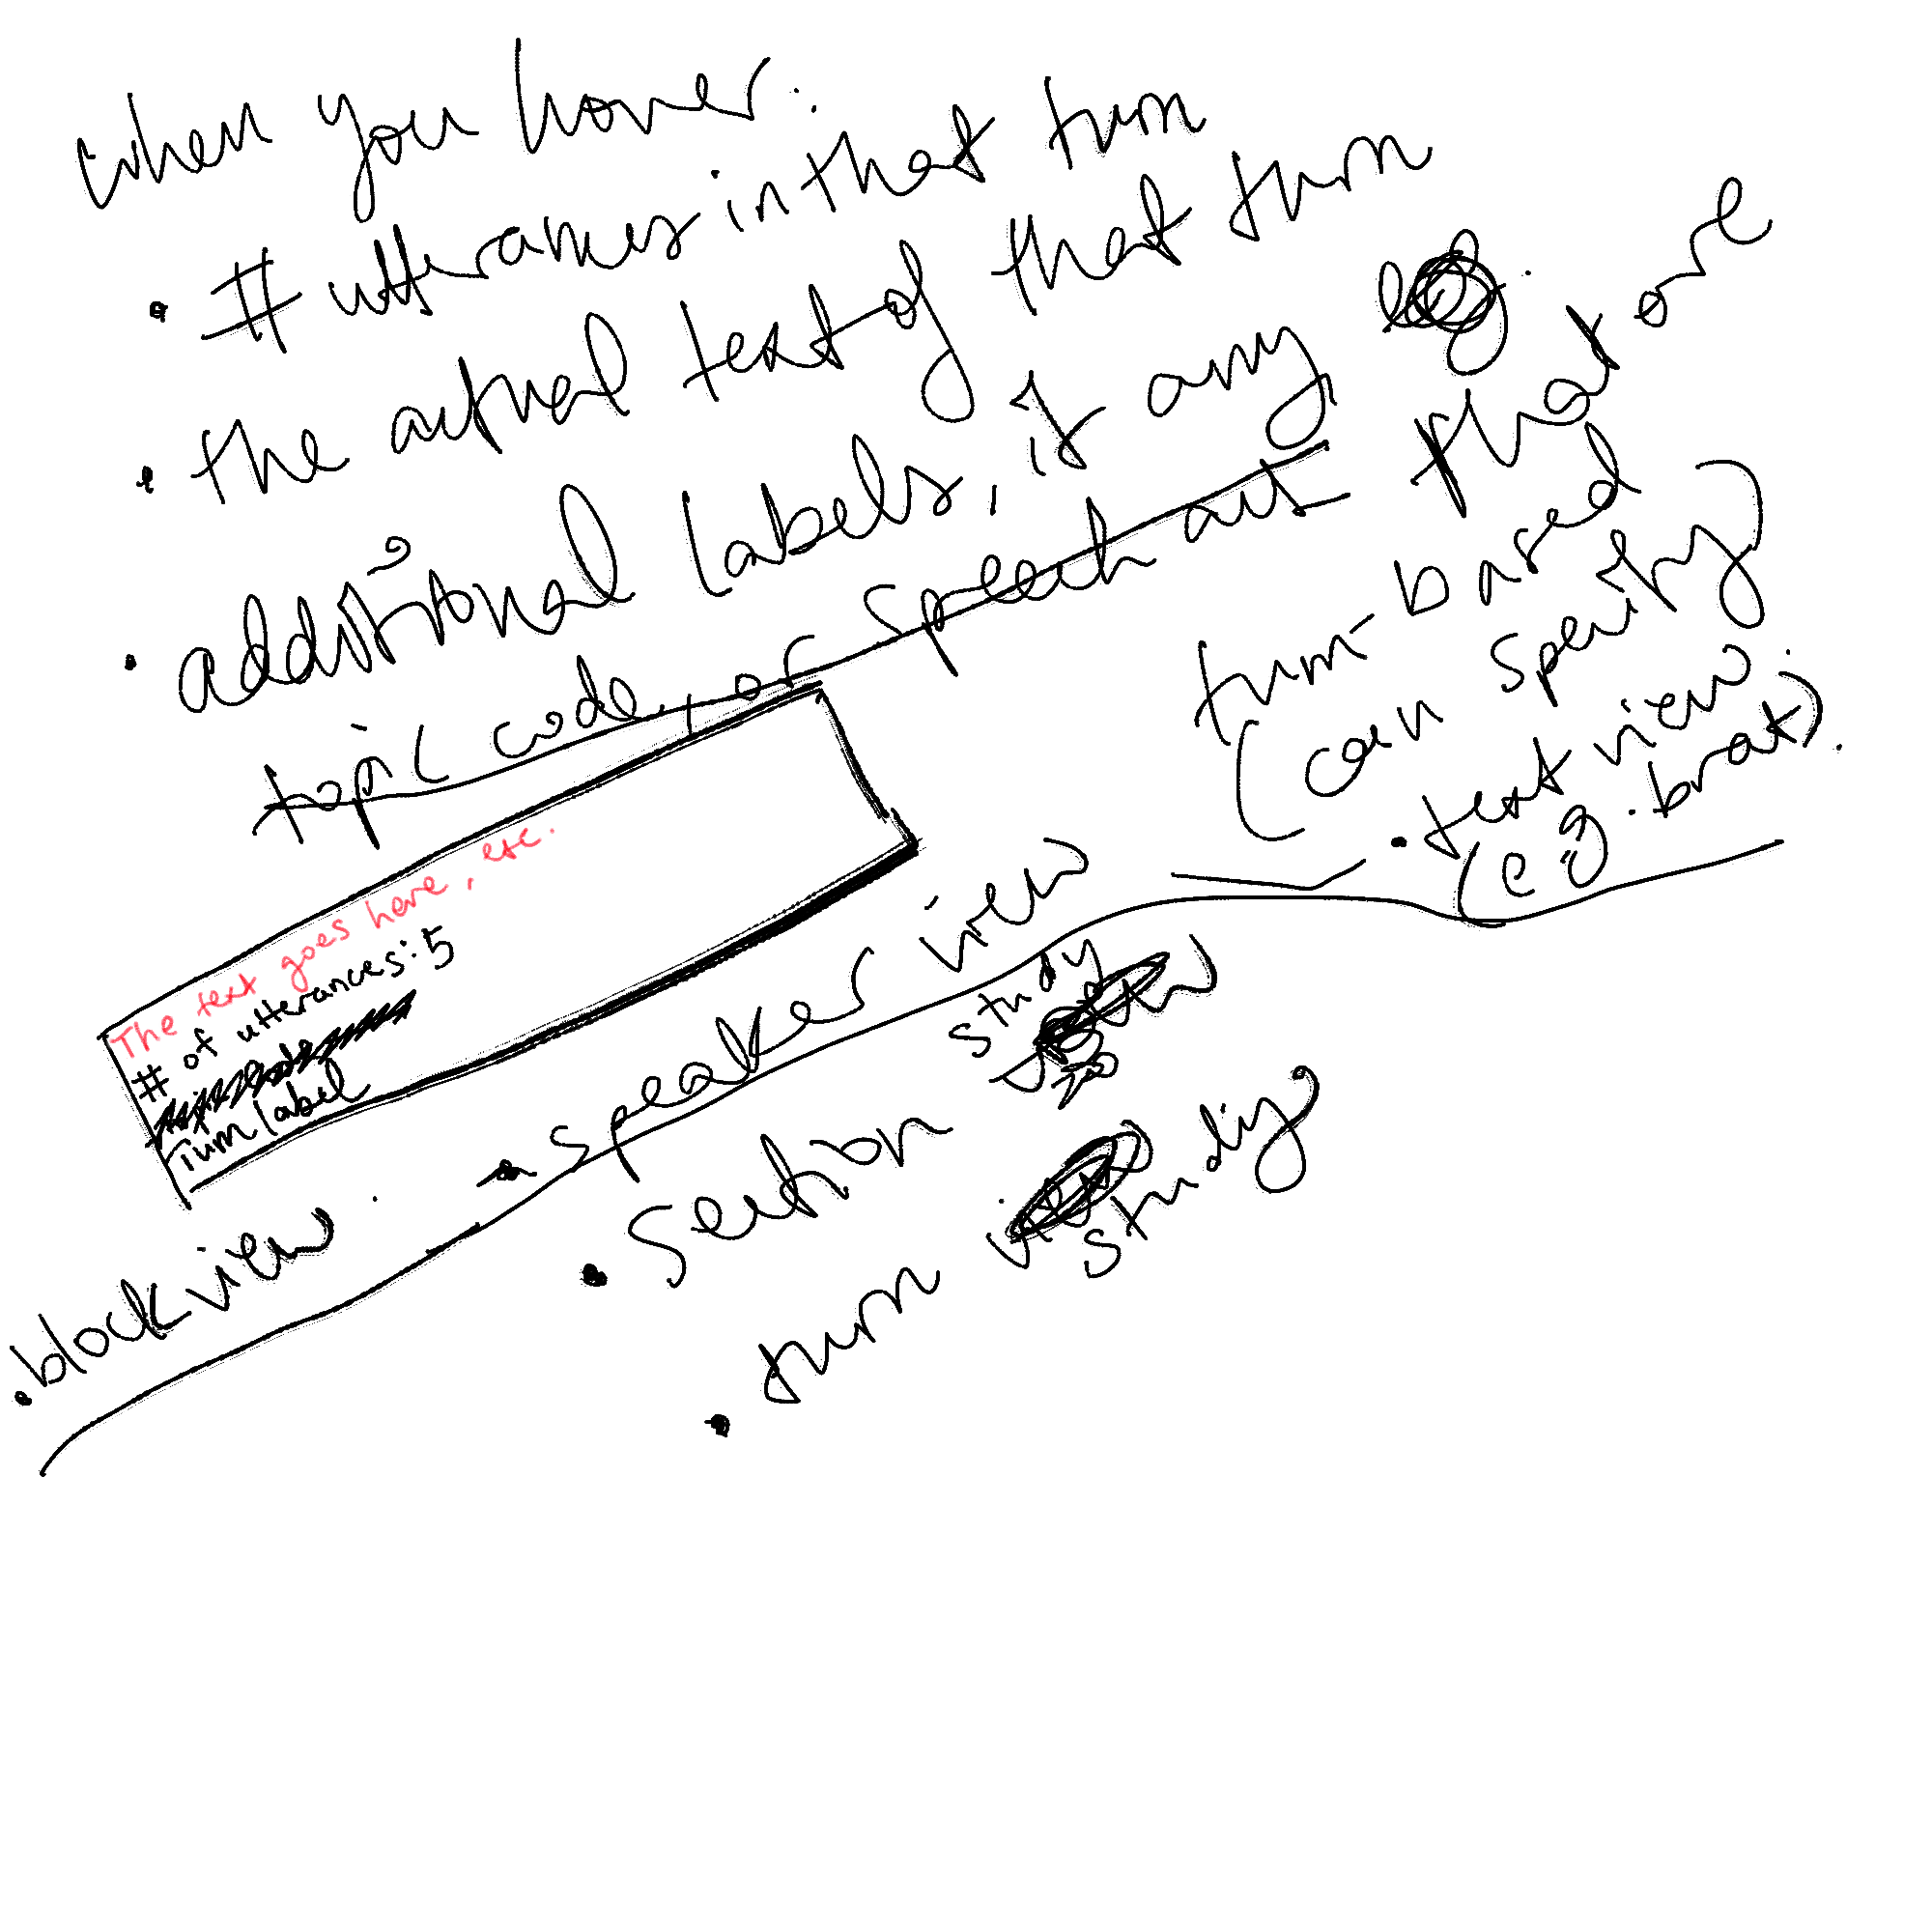 when you hover:
· # utterances in that turn
· the actual text of that turn
· additional labels, if any that are
turn-based
(can specify)
topic code, or speech act
· text view
(eg. brat).
The text goes here, etc.
# of utterances: 5
Turn label
· block view.
· speaker view
· section study
· turn study